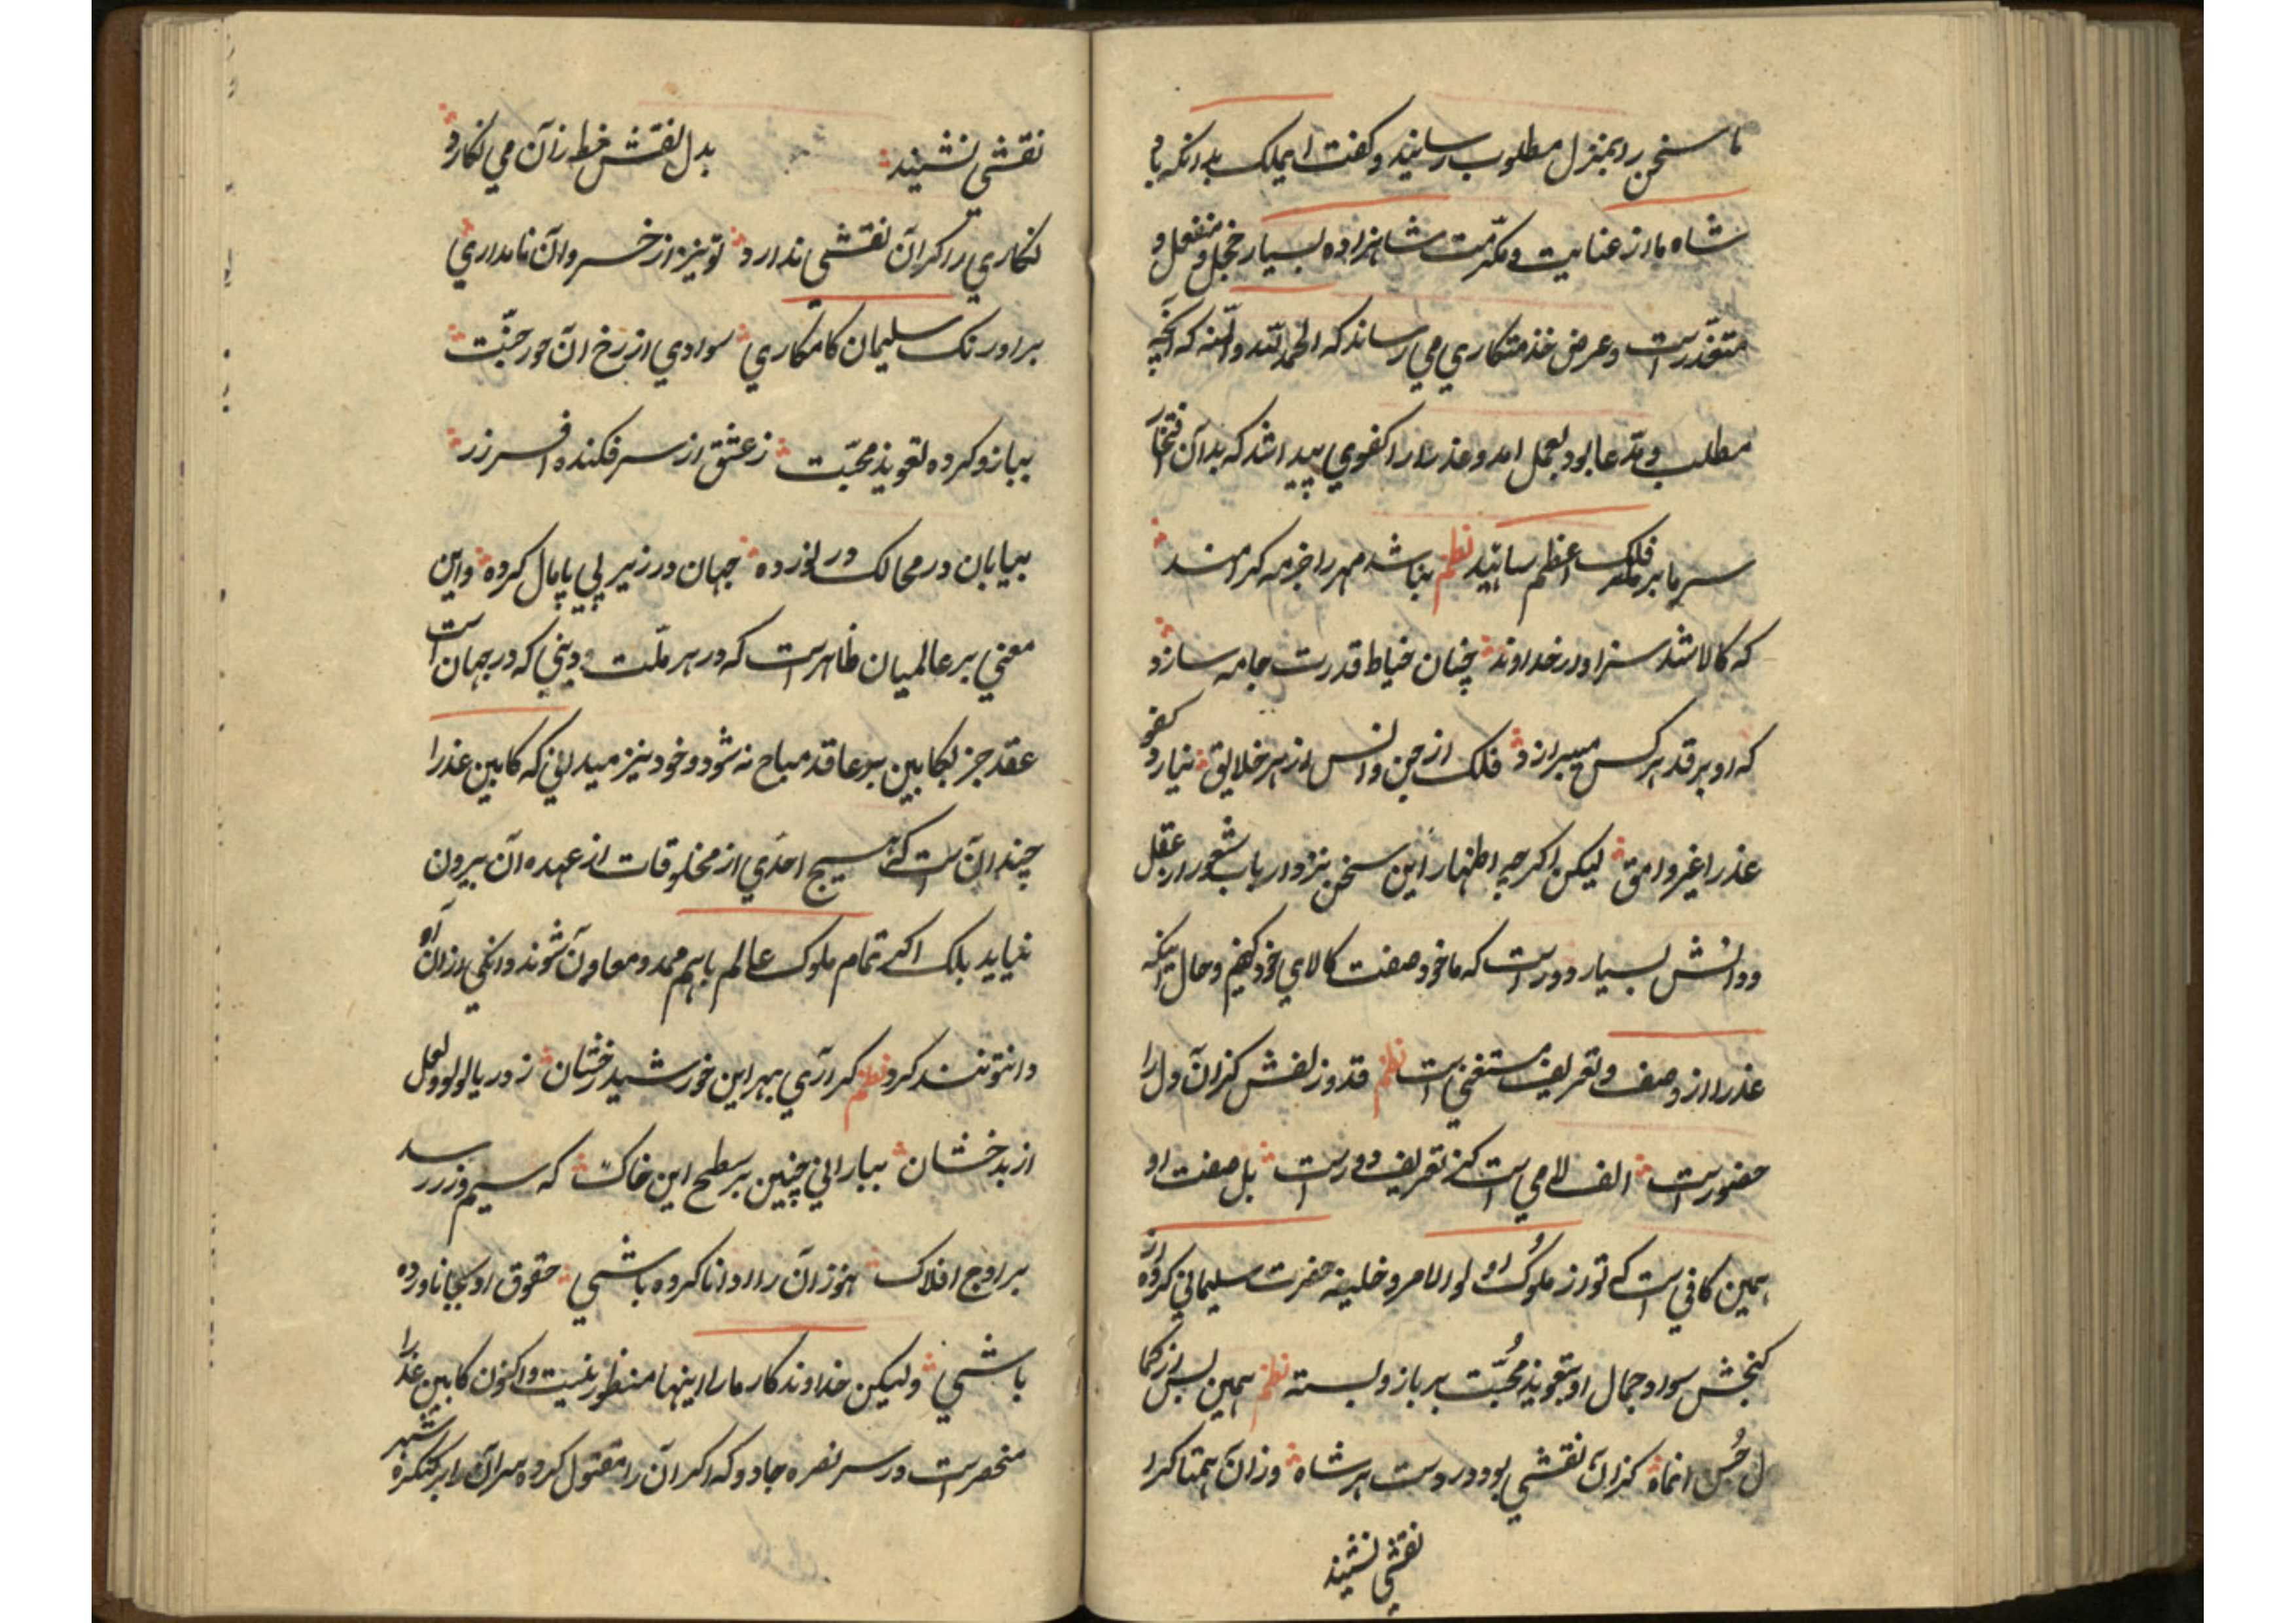 تا سخن را بمنزل مطلوب رسانید و کفت ایملک بدانکه پاد
شاه ما از عنایت و مکرّمت شاهزاده بسیار خجل و منفعل و
متعذّر است و عرض خذمتکاری می رساند که الحمد لله والمنه که آنچه
مطلب و مدّعا بود بعمل امد و عذرا را کفوی پیدا شد که بدان افتخار
سر ما بر فلک اعظم رسانید نظم نباشد مهر را جز مه کرامند
که کالا شد سزاوار خداوند چنان خیاط قدرت جامه سازد
که او بر قد هر کس میبرازد فلک از جن و انس از هر خلایق نیارد کفو
عذرا غیر وامق لیکن اکرچه اظهار این سخن نزد ارباب شعور از عقل
و دانش بسیار دور است که ما خود صفت کالای خود کنیم و حال اینکه
عذرا از وصف و تعریف مستغنی است نظم قد و زلفش کزان دل را
حضور است الف لامی است کز تعریف دور است بل صفت او
همین کافی است که تو از ملوک اولو الامر و خلیفه حضرت سلیمانی کرده از
کنجش سواد جمال او بتعویذ محُبّت بر بازو بسته نظم همین بس از کما
ل حُسن انماه کزان نقشی بود در دست هر شاه وزان همتا کرا
نقشی نشیند
نقشی نشیند بدل نقش خط زان می نکارد
نکاری را کران نقشی ندارد تو نیز از خسروان نامداری
بر اورنک سلیمان کامکاری سوادی از رخ ان حور جنّت
ببازو کرده تعویذ محبّت ز عشق از سر فکنده افسر زر
بیابان در ممالک در نورده جهان در زیر پی پامال کرده و این
معنی بر عالمیان ظاهر است که در هر ملّت و دینی که در جهان است
عقد جز بکابین بر عاقد مباح نه شود و خود نیز میدانی که کابین عذرا
چندان است که هیچ احدی از مخلوقات از عهده آن بیرون
نیاید بلک اکر تمام ملوک عالم باهم ممد و معاون شوند دانکی از ان
دا نتوتنند کرد نظم کر آری بهر این خورشید رخشان ز دریا لولو و لعل
از بدخشان ببارانی چنین بر سطح این خاک که سیم و زر رسد
بر اوج افلاک هنوز آن را ادا ناکرده باشی حقوق او بجا ناورده
باشی ولیکن خداوند کار ما را اینها منظور نیست و اکنون کابین عذرا
منحصر است در سر نفره جادو که اکر ان را مقتول کرده سر آن را بر کنکره شهر